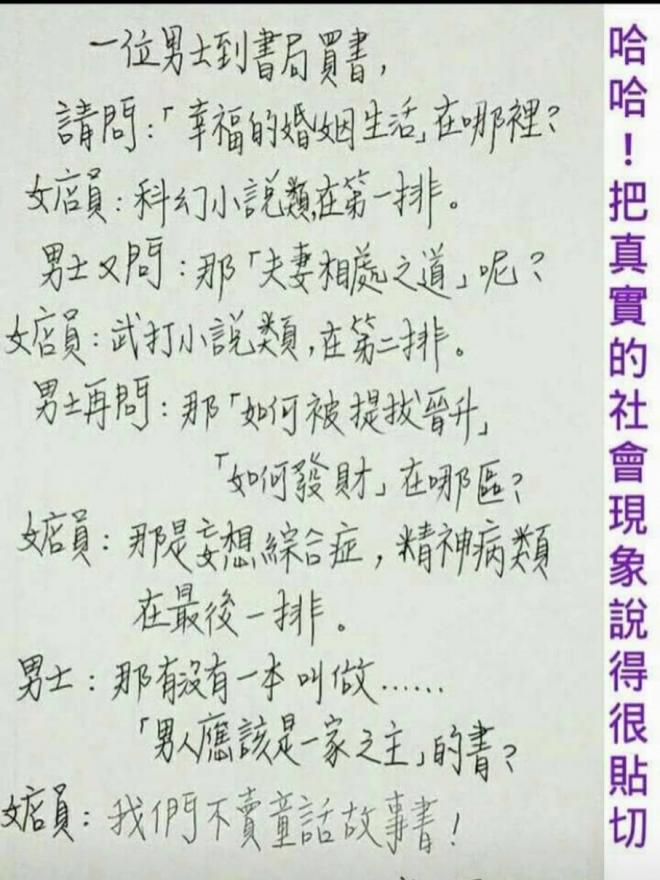 一位男士到書局買書，
請問：「幸福的婚姻生活」在哪裡？
女店員：科幻小說類，在第一排。
男士又問：那「夫妻相處之道」呢？
女店員：武打小說類，在第二排。
男士再問：那「如何被提拔晉升」
「如何發財」在哪區？
女店員：那是妄想綜合症，精神病類
在最後一排。
男士：那有沒有一本叫做……
「男人應該是一家之主」的書？
女店員：我們不賣童話故事書！
哈哈！把真實的社會現象說得很貼切